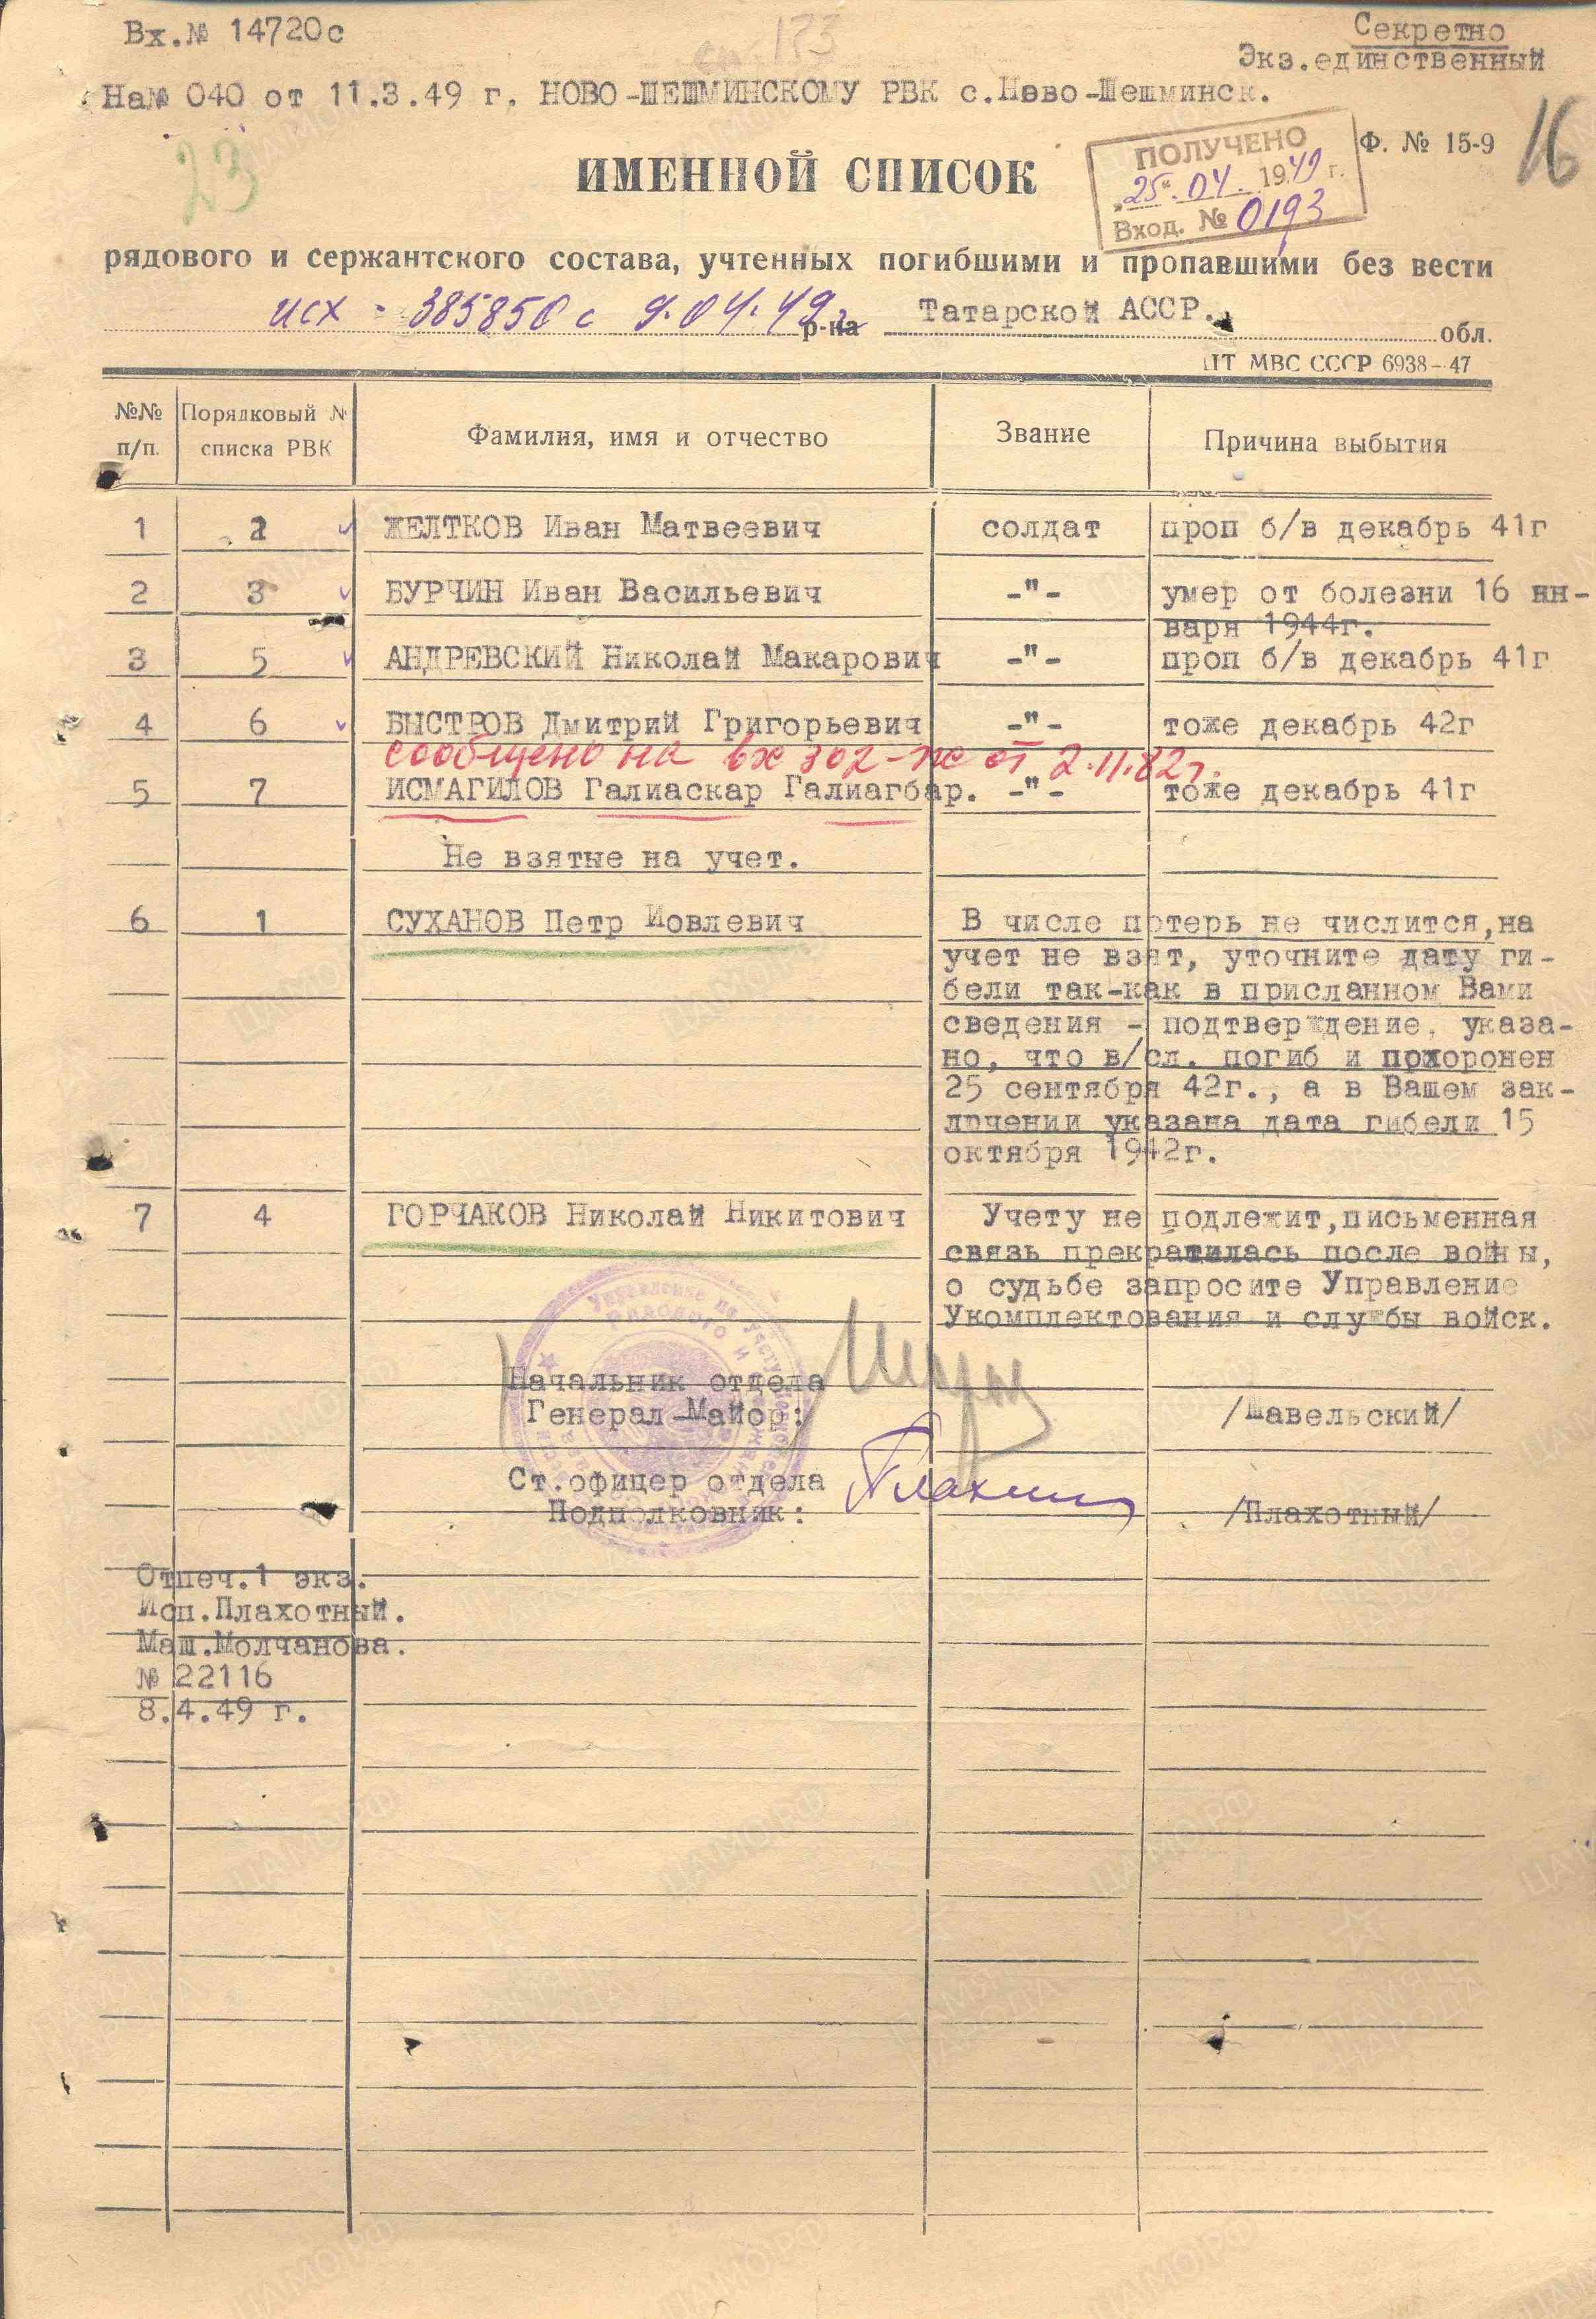 Вх.№ 14720с
Секретно
Экз.единственный
На№ 040 от 11.3.49 г. НОВО-ШЕШМИНСКОМУ РВК с.Ново-Шешминск.
173
23
16
Ф. № 15-9
ПОЛУЧЕНО
"25". 04. 1949 г.
Вход. № 0193
ИМЕННОЙ СПИСОК
рядового и сержантского состава, учтенных погибшими и пропавшими без вести
исх - 385850с 9.04.49г р-на Татарской АССР. обл.
ЦТ МВС СССР 6938-47
№№ п/п. Порядковый № списка РВК Фамилия, имя и отчество Звание Причина выбытия
1 2 ЖЕЛТКОВ Иван Матвеевич солдат проп б/в декабрь 41г
2 3 БУРЧИН Иван Васильевич -"- умер от болезни 16 ян-
варя 1944г.
3 5 АНДРЕВСКИЙ Николай Макарович -"- проп б/в декабрь 41г
4 6 БЫСТРОВ Дмитрий Григорьевич -"- тоже декабрь 42г
сообщено на вх 302-пс от 2.11.82г.
5 7 ИСМАГИЛОВ Галиаскар Галиагбар. -"- тоже декабрь 41г
Не взятые на учет.
6 1 СУХАНОВ Петр Иовлевич В числе потерь не числится,на
учет не взят, уточните дату ги-
бели так-как в присланном Вами
сведения - подтверждение, указа-
но, что в/сл. погиб и похоронен
25 сентября 42г., а в Вашем зак-
лючении указана дата гибели 15
октября 1942г.
7 4 ГОРЧАКОВ Николай Никитович Учету не подлежит,письменная
связь прекратилась после войны,
о судьбе запросите Управление
Укомплектования и службы войск.
Начальник отдела
Генерал-Майор: /Шавельский/
Ст.офицер отдела
Подполковник: /Плахотный/
Отпеч.1 экз.
Исп.Плахотный.
Маш.Молчанова.
№ 22116
8.4.49 г.